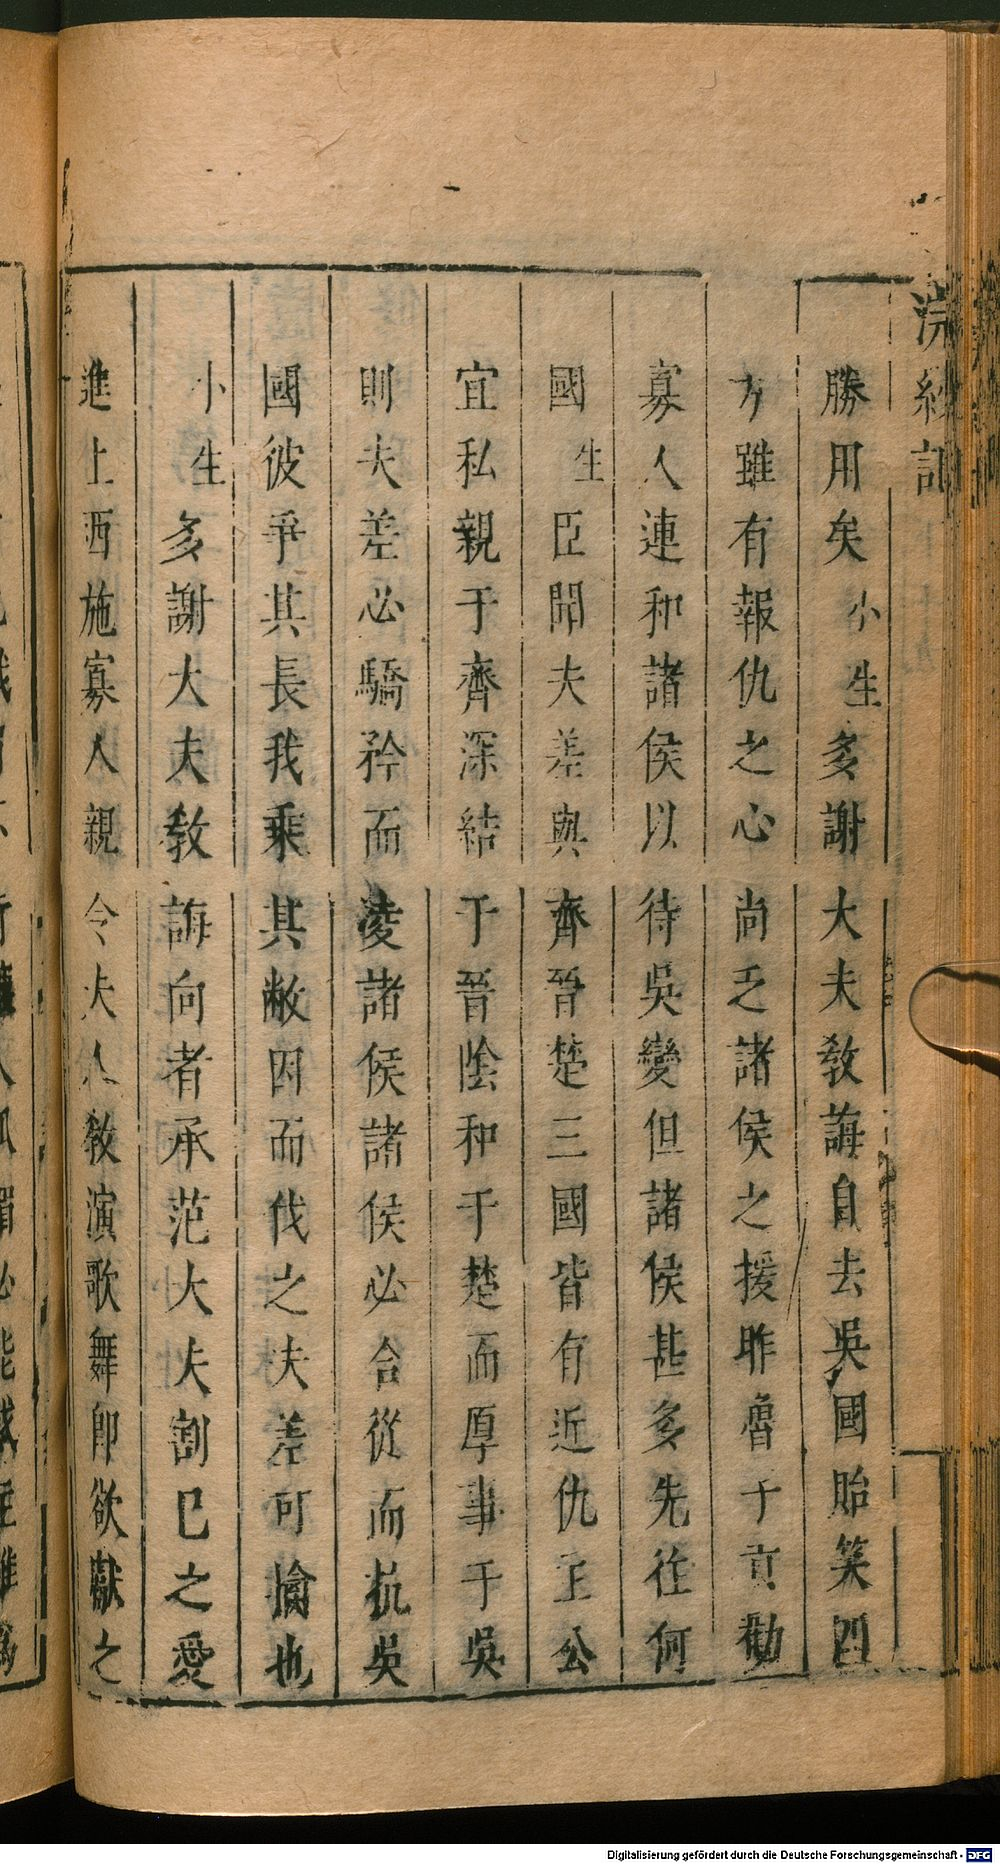 浣紗記
勝用矣小生多謝大夫教誨自去吳國貽笑四
方雖有報仇之心尚乏諸侯之援昨魯子貢勸
寡人連和諸侯以待吳變但諸侯甚多先往何
國生臣聞夫差與齊晉楚三國皆有近仇王公
宜私親于齊深結于晉陰和于楚而厚事于吳
則夫差必驕矜而凌諸侯諸侯必合從而抗吳
國彼爭其長我乘其敝因而伐之夫差可擒也
小生多謝大夫教誨向者承范大夫割己之愛
進上西施寡人親令夫人教演歌舞即欲獻之
Digitalisierung gefördert durch die Deutsche Forschungsgemeinschaft - DFG